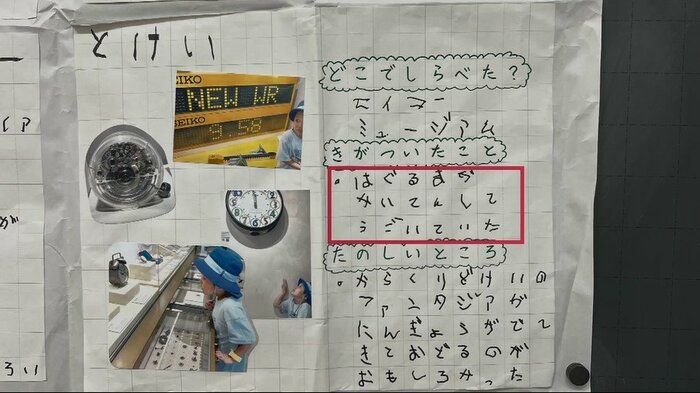 とけい
SEIKO
NEW WR
SEIKO
9.58
どこでしらべた?
セイコー
ミュージアム
きがついたこと
・はぐるまが
かいてんして
うごいていた
たのしいところ
・からくりどけいの
ファンタジアが
にんぎょうがでて
きておどるのが
おもしろかった